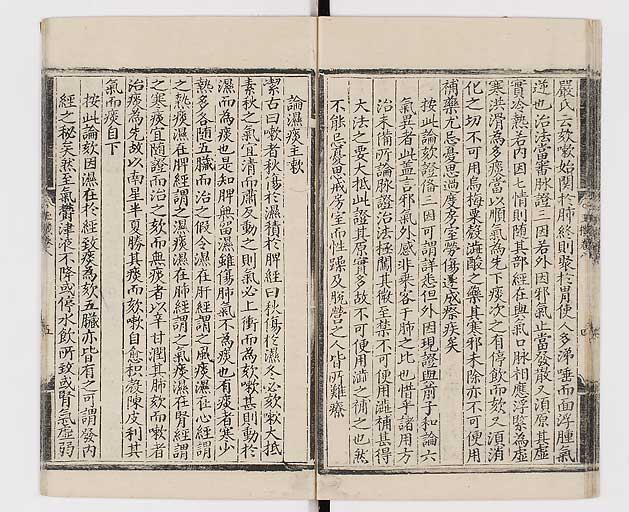 嚴氏云欬嗽始關於肺終則聚於胃使人多涕唾而面浮腫氣
逆也治法當審脉證三因若外因邪氣止當發散又須原其虛
實冷熱若内因七情則隨其部經在與氣口脉相應浮緊為虛
寒洪滑為多痰當以順氣為先下痰次之有停飲而欬又須消
化之切不可用烏梅罌粟殼澁酸之藥其寒邪未除亦不可便用
補藥尤忌憂思過度房室勞傷遂成瘵疾矣
按此論欬證備三因可謂詳悉但外因現證與前子和論六
氣異者此蓋言邪氣外感非乗客于肺之比也惜乎諸用方
治未備所論脉證治法極關其微至禁不可便用澁補甚得
大法之要大抵此證其原實多故不可便用澁之補之也然
不能忌憂思戒房室而性躁及脱營之人皆所難療
論濕痰主軟
潔古曰嗽者秋傷於濕積於脾經曰秋傷於濕冬必欬嗽大抵
素秋之氣宜清而肅反動之則氣必上衝而為欬嗽甚則動於
濕而為痰也是知脾無留濕雖傷肺氣不為痰也有痰者寒少
熱多各隨五臟而治之假令濕在肝經謂之風痰濕在心經謂
之熱痰濕在脾經謂之濕痰濕在肺經謂之氣痰濕在腎經謂
之寒痰宜隨證而治之欬而無痰者以辛甘潤其肺欬而嗽者
治痰為先故以南星半夏勝其痰而欬嗽自愈枳殼陳皮利其
氣而痰自下
按此論欬因濕在於經致痰為欬五臟亦皆有之可謂發内
經之秘矣然至氣鬱津液不降或停水飲所致或腎氣虛弱